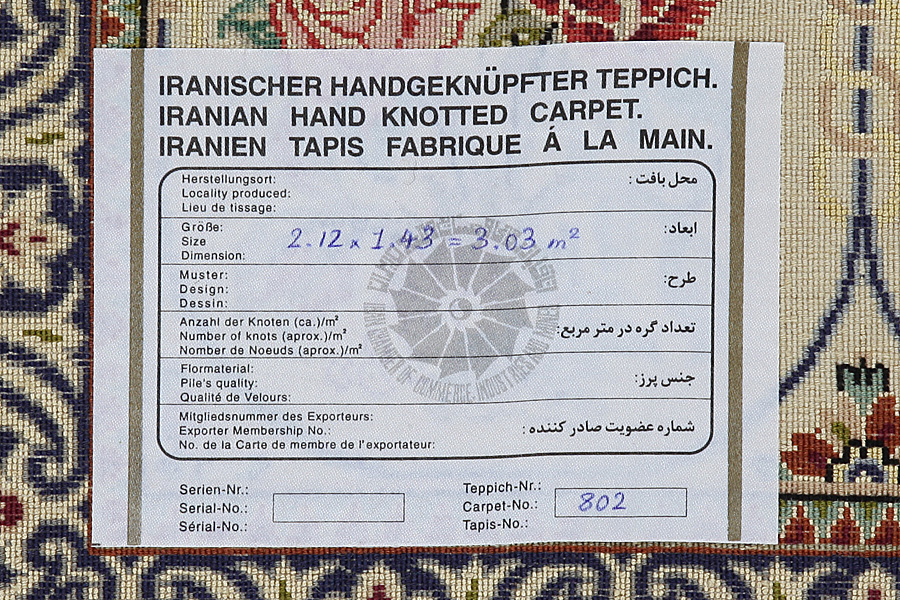 IRANISCHER HANDGEKNÜPFTER TEPPICH.
IRANIAN HAND KNOTTED CARPET.
IRANIEN TAPIS FABRIQUE Á LA MAIN.
Herstellungsort:
Locality produced:
Lieu de tissage:
محل بافت :
Größe:
Size
Dimension:
2.12 x 1.43 = 3.03 m²
ابعاد:
Muster:
Design:
Dessin:
طرح:
Anzahl der Knoten (ca.)/m²
Number of knots (aprox.)/m²
Nomber de Noeuds (aprox.)/m²
تعداد گره در متر مربع:
Flormaterial:
Pile's quality:
Qualité de Velours:
جنس پرز:
Mitgliedsnummer des Exporteurs:
Exporter Membership No.:
No. de la Carte de membre de l'exportateur:
شماره عضویت صادر کننده :
IRAN CHAMBER OF COMMERCE INDUSTRIES AND MINES
Serien-Nr.:
Serial-No.:
Sérial-No.:
Teppich-Nr.:
Carpet-No.:
Tapis-No.:
802